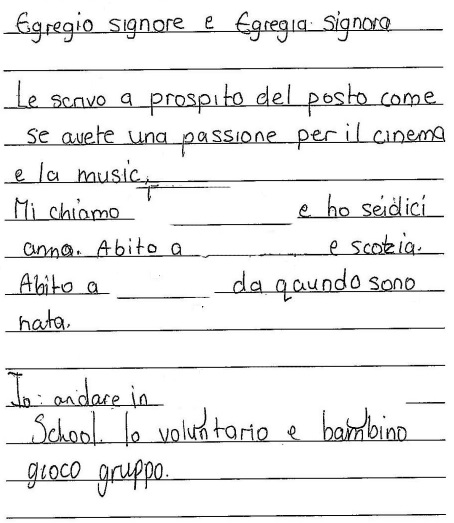 Egregio signore e Egregia signora
Le scrivo a prospito del posto come
se avete una passione per il cinema
e la music,
Mi chiamo e ho seidici
anna. Abito a e scozia.
Abito a da qaundo sono
nata.
Io: andare in
School. Io voluntario e bambino
gioco gruppo.